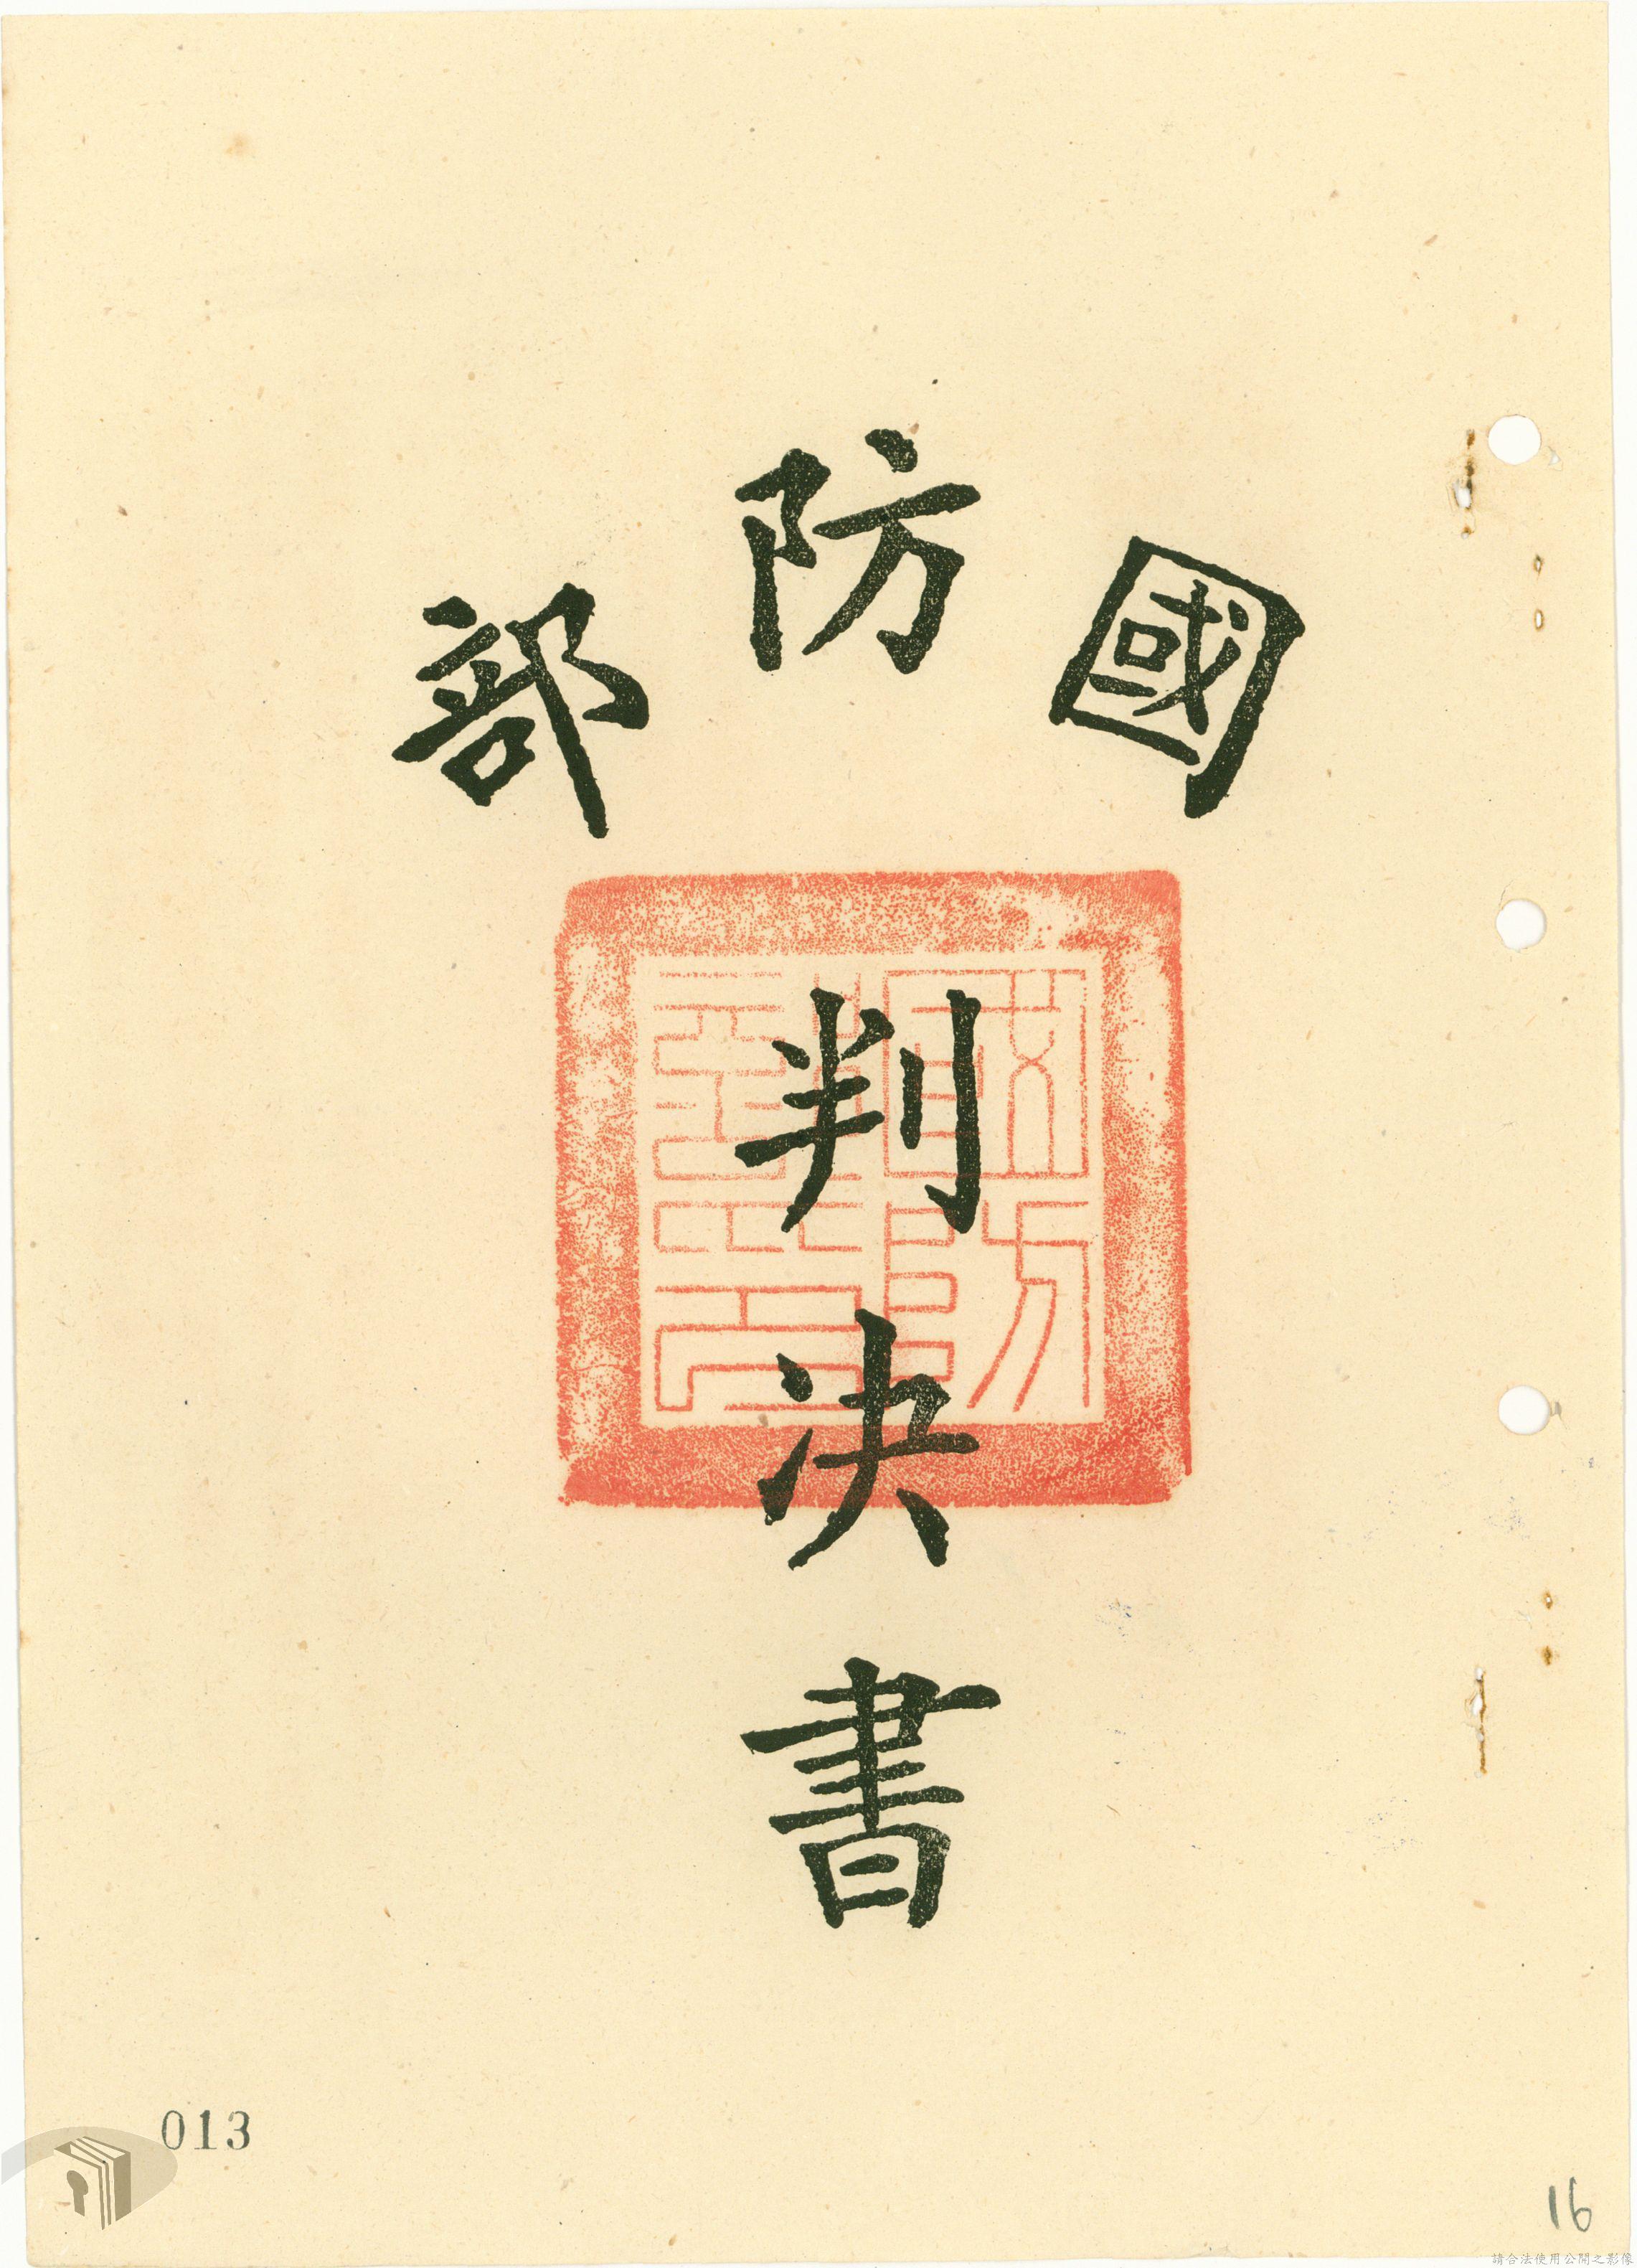 國防部
判決書
013
16
請合法使用公開之影像